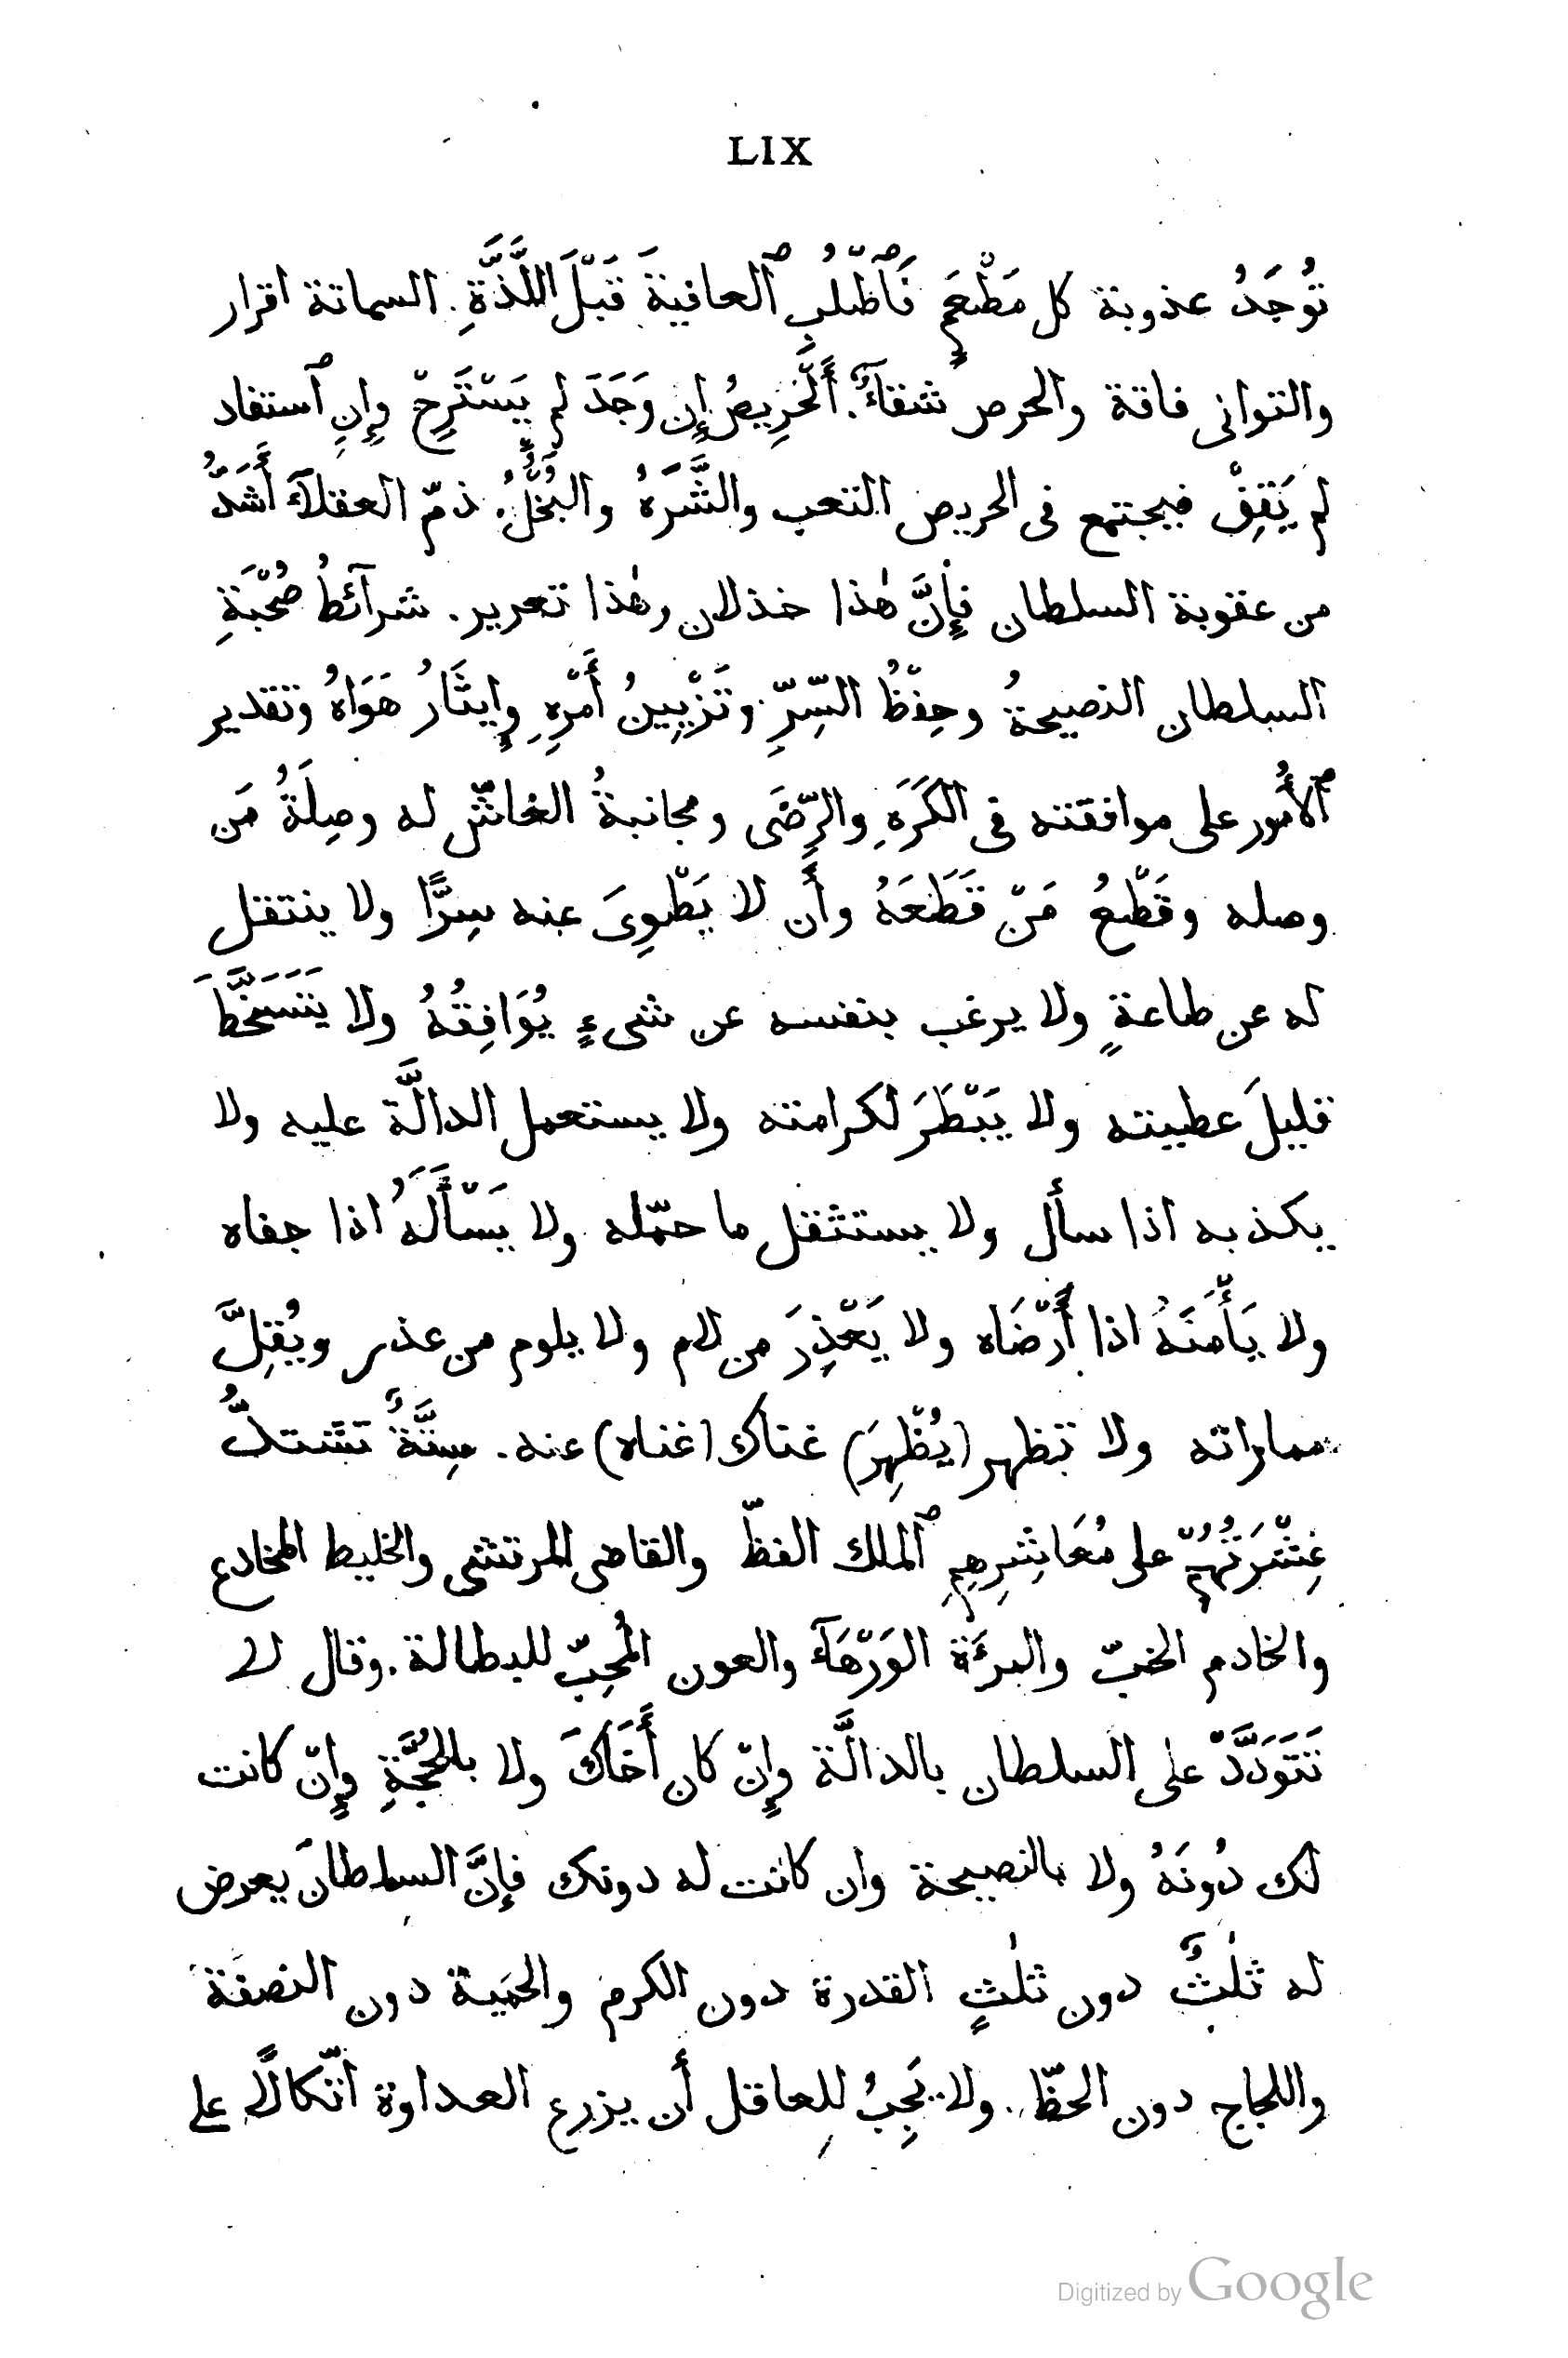 LIX
تُوجَدُ عذوبة كل مَطْعَمٍ فَٱطْلُبِ ٱلعافيةَ قَبْلَ اللَّذَّةِ. السماتة اقرار
والتوانى فاقة والحرص شقاءٌ. أَلْحَرِيصُ إِن وَجَدَ لم يَسْتَرِحْ وإِنِ ٱستفاد
لم يَقِفْ فيجتمع فى الحريص التعب والشَّرَهُ والبُخْلُ. ذمّ العقلآءِ أَشَدُّ
من عقوبة السلطان فإِنَّ هٰذا خذلان وهٰذا تعرير. شرآئطُ صُحْبَةِ
السلطان النصيحةُ وحِفْظُ السِّرِّ وتَزْيِينُ أَمْرِهِ وإِيثَارُ هَوَاهُ وتقدير
ٱلأُمور على موافقته فى الكَرَهِ والرِّضَى ومجانبةُ الغاشّ له وصِلَةُ مَن
وصله وقَطْعُ مَنْ قَطَعَهُ وأَن لا يَطْوِىَ عنه سِرًّا ولا ينتقل
له عن طاعةٍ ولا يرغب بنفسه عن شىءٍ يُوَافِقُهُ ولا يَتَسَخَّطَ
قليلَ عطيته ولا يَبْطَرَ لكرامته ولا يستعمل الدالَّة عليه ولا
يكذبه اذا سأل ولا يستثقل ما حمّله ولا يَسْأَلَهُ اذا جفاه
ولا يَأْمَنَهُ اذا أَرْضَاه ولا يَعْذِرَ من لام ولا يلوم من عذر ويُقِلَّ
مماراته ولا تظهر (يُظْهِرَ) غناك (غناه) عنه. سِتَّةٌ تشتدُّ
عِشْرَتُهُمْ على مُعَاشِرِهِمِ ٱلملك الفظّ والقاضى المرتشى والخليط المخادع
والخادم الخبّ والمرءَة الوَرْهَآءُ والعون المُحِبّ للبطالة. وقال لا
تَتَوَدَّدْ على السلطان بالدالَّة وإِنْ كان أَخَاكَ ولا بالحُجَّةِ وإِنْ كانت
لك دُونَهُ ولا بالنصيحة وان كانت له دونك فإِنَّ السلطانَ يعرض
له ثلٰثٌ دون ثلٰثٍ القدرة دون الكرم والحمية دون النصفة
واللجاج دون الحظّ. ولا يَجِبُ لِلعاقل أَن يزرع العداوة اتّكالًا على
Digitized by Google